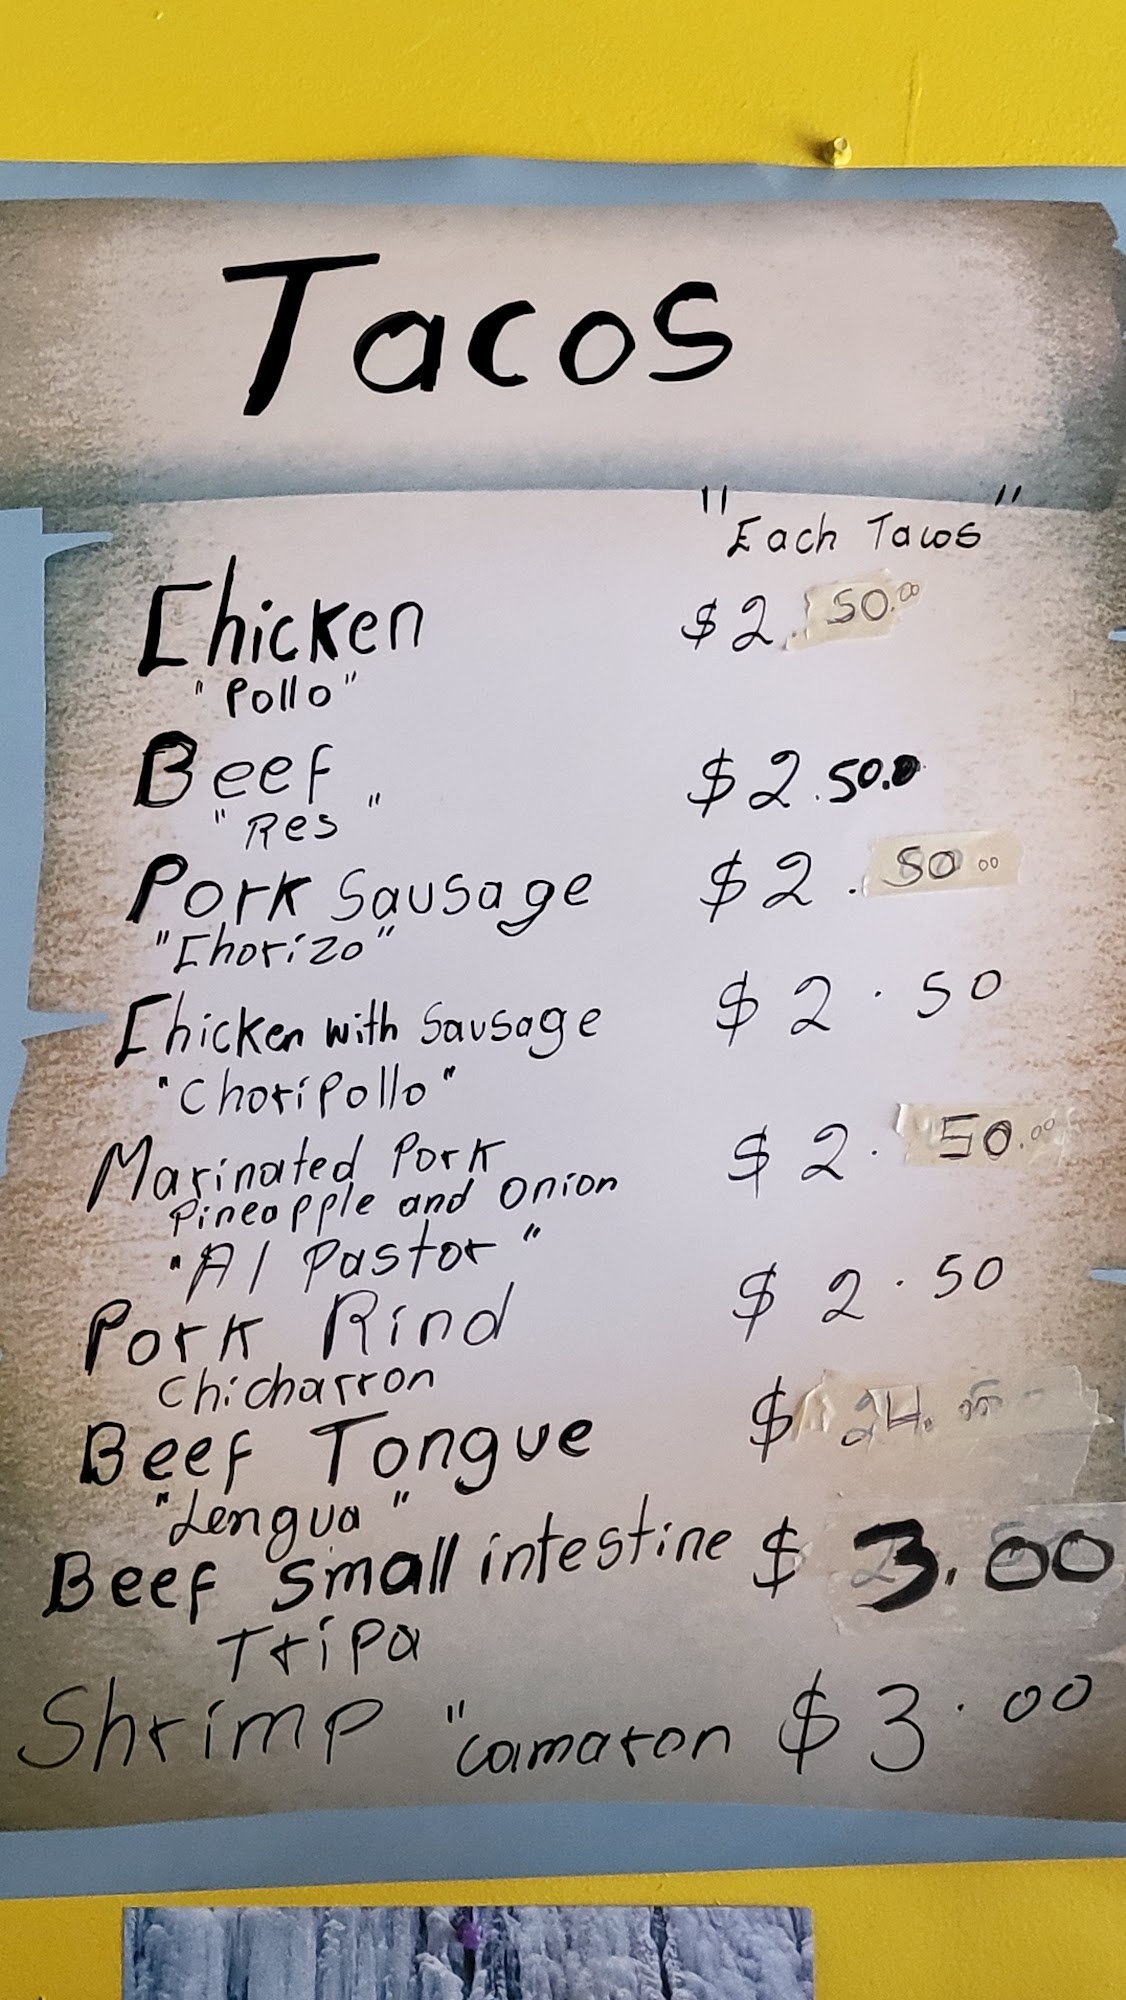 Tacos
"Each Tacos"
Chicken $2.50.00
"Pollo"
Beef $2.50.0
"Res"
Pork Sausage $2.50 00
"Chorizo"
Chicken with Sausage $2.50
"Choripollo"
Marinated Pork $2.50.00
Pineapple and Onion
"Al Pastor"
Pork Rind $2.50
Chicharron
Beef Tongue $
"Lengua"
Beef Small intestine $3.00
Tripa
Shrimp "camaron $3.00